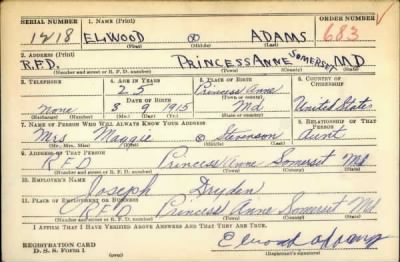 SERIAL NUMBER 1. NAME (Print) ORDER NUMBER
1218 ELWOOD ⊗ ADAMS 683
(First) (Middle) (Last)
2. ADDRESS (Print)
R.F.D. PRINCESS ANNE SOMERSET MD
(Number and street or R. F. D. number) (Town) (County) (State)
3. TELEPHONE 4. AGE IN YEARS 5. PLACE OF BIRTH 6. COUNTRY OF CITIZENSHIP
25 Princess Anne
(Town or county)
DATE OF BIRTH
none 3 9 1915 Md. United States
(Exchange) (Number) (Mo.) (Day) (Yr.) (State or country)
7. NAME OF PERSON WHO WILL ALWAYS KNOW YOUR ADDRESS 8. RELATIONSHIP OF THAT PERSON
Mrs Maggie ⊗ Stevenson Aunt
(Mr., Mrs., Miss) (First) (Middle) (Last)
9. ADDRESS OF THAT PERSON
R.F.D Princess Anne Somerset Md.
(Number and street or R. F. D. number) (Town) (County) (State)
10. EMPLOYER'S NAME
Joseph Dryden
11. PLACE OF EMPLOYMENT OR BUSINESS
R.F.D Princess Anne Somerset Md.
(Number and street or R. F. D. number) (Town) (County) (State)
I AFFIRM THAT I HAVE VERIFIED ABOVE ANSWERS AND THAT THEY ARE TRUE.
REGISTRATION CARD
D. S. S. Form 1
Elwood Adams
(Registrant's signature)